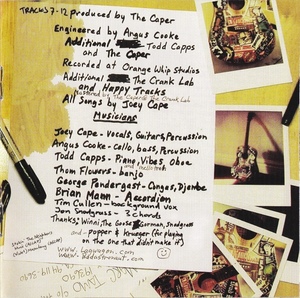 TRACKS 7-12 produced by The Caper
Engineered by Angus Cooke
Additional Todd Capps
and The Caper
Recorded at Orange Whip Studios
Additional The Crank Lab
and Happy Tracks
Mastered by The Caper @ The Crank Lab
All Songs by Joey Cape
Musicians
Joey Cape - Vocals, Guitars, Percussion
Angus Cooke - Cello, bass, Percussion
Todd Capps - Piano, Vibes, Oboe
and mellotron
Thom Flowers - banjo
George Pendergast - Congas, Djembe
Brian Mann - Accordion
Tim Cullen - background vox
Jon Snodgrass - 3 chords
Thanks: Winni, The Goose, Gorman, Snodgrass
and - popper & Krueger (for playing
on the one that didn't make it)
www.lagwagon.com